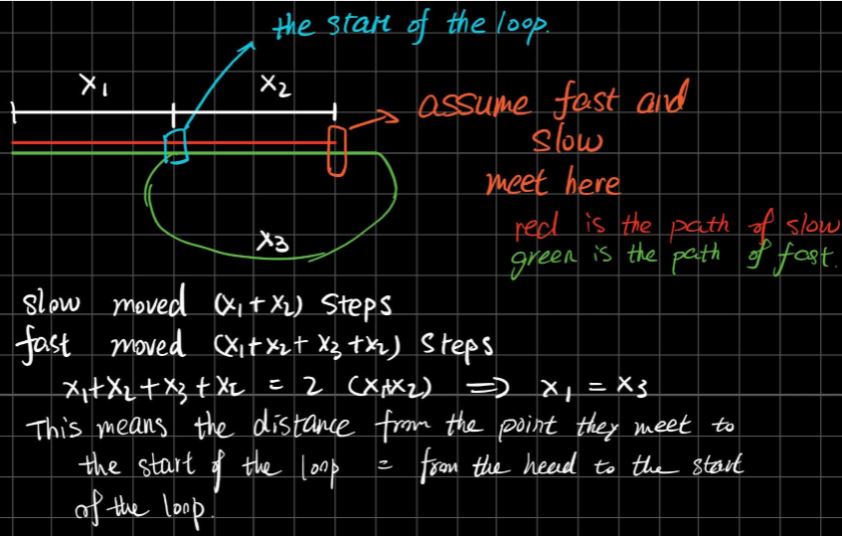 the start of the loop.
x₁ x₂
assume fast and
slow
meet here
red is the path of slow
green is the path of fast.
x₃
slow moved (x₁+x₂) steps
fast moved (x₁+x₂+x₃+x₂) steps
x₁+x₂+x₃+x₂ = 2 (x₁+x₂) ⇒ x₁ = x₃
This means the distance from the point they meet to
the start of the loop = from the head to the start
of the loop.